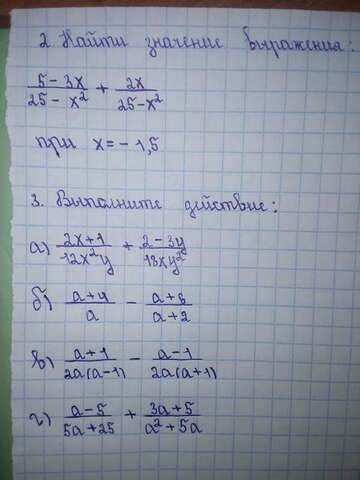 2. Найти значение выражения:
(5 - 3x)/(25 - x²) + 2x/(25 - x²)
при x = - 1,5
3. Выполните действие:
а) (2x + 1)/(12x²y) + (2 - 3y)/(18xy²)
б) (a + 4)/a - (a + 6)/(a + 2)
в) (a + 1)/(2a(a - 1)) - (a - 1)/(2a(a + 1))
г) (a - 5)/(5a + 25) + (3a + 5)/(a² + 5a)